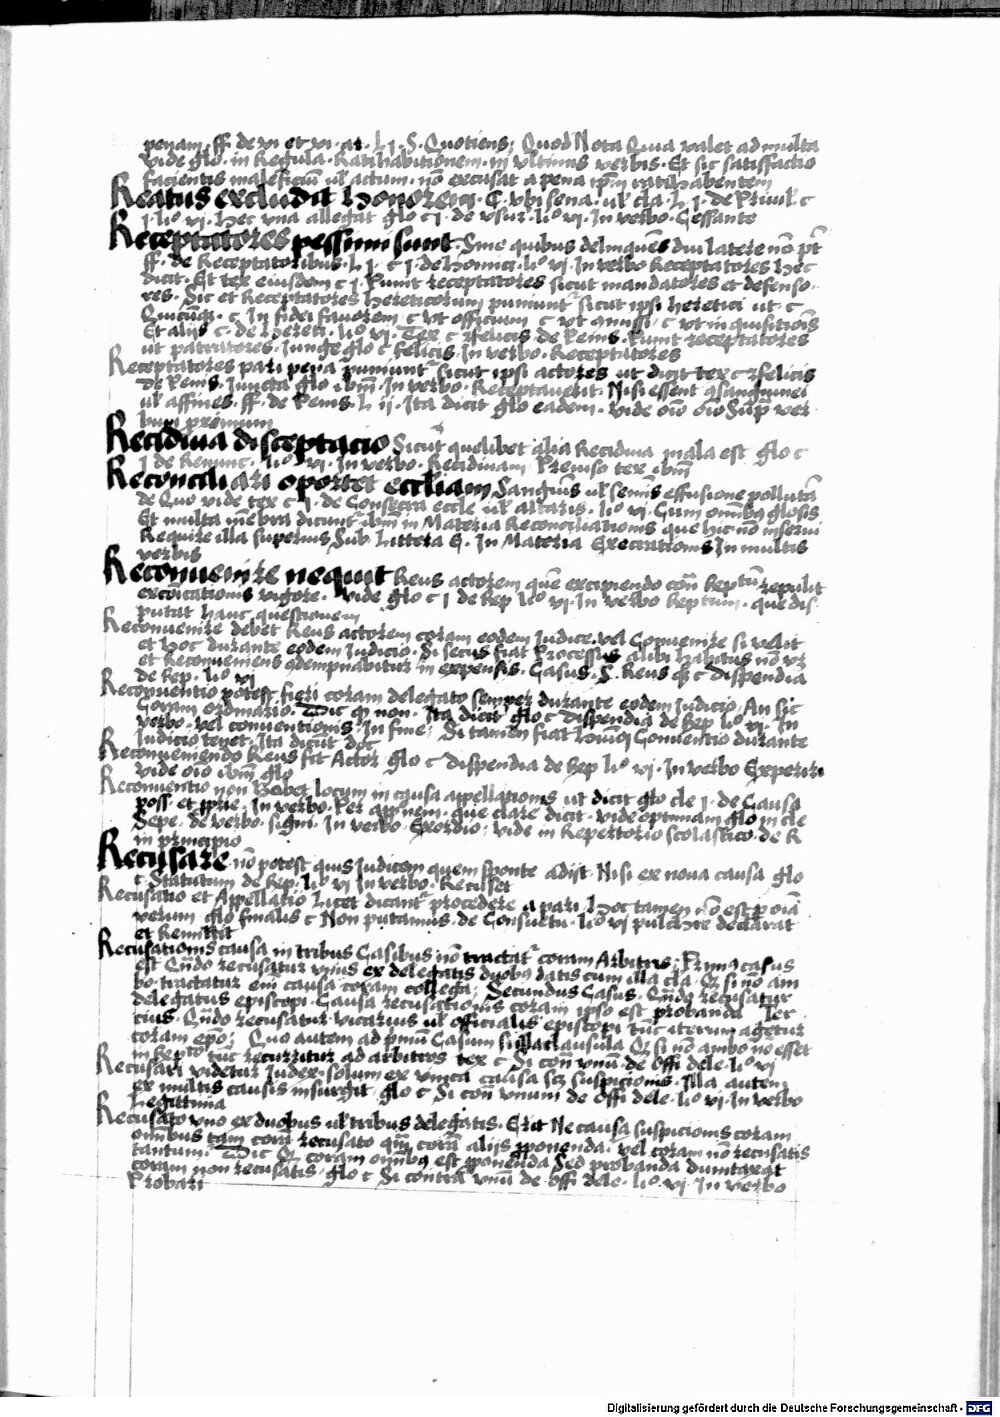 penam. ff. de vi et vi. ar. L j. §. Quotiens; Quod Nota Quia valet ad multa
vide glo. in Regula. Ratihabitionem. in vltimis verbis. Et sic satisfactio
facientis maleficiū uł actum. nō excusat a pena ip̄m ratihabentem
Reatus excludit honorem. C. vbi sena. uł cla. L j. de Priuił. c
j. li° vj. Hec vna allegat glo c j. de vsur. li° vj. In verbo. Cessante
Receptatores pessimi sunt. Sine quibus delinquēs diu latere nō pt̄
ff. de Receptatoribus. L j. c j. de homici. li° vj. In verbo Receptatores hec
dicit. Et tex eiusdem c j. Punit receptatores sicut mandatores et defenso-
res. Sic et Receptatores hereticorum puniunt̄ sicut ipsi heretici ut. c
Quicūq3. c In fidei fauorem. c vt officium c vt inquisitiōis
Et alijs c. de hereti. li° vj. Tex c felicis de Penis. Punit receptatores
ut patratores. Junge glo c felicis. In verbo. Receptatores
Receptatores pari pena puniunt̄ sicut ipsi actores ut dicit tex c felicis
De Penis. Juncta glo ibm̄. In verbo. Receptauerit. Nisi essent gsanguinei
uł affines. ff. de Penis. L ij. Ita dicit glo eadem. vide oīo oīo Sup̄ ver
bum
Recidiua disceptacio Sicut quelibet alia Recidiua mala est glo c
j de Renunc. li° vj. In verbo. Recidiuam. Premiso tex ibm̄
Reconciliari oportet eccliam Sanguīs uł semīs effusione pollutā
de Quo vide tex c j. de Consecra eccle uł altaris. li° vj. Cum omībus glosis
Et multa mēbra dicunt̄ ibm̄ in Materia Reconciliationis que hic nō inserui
Require illa superius Sub Littera E. In Materia Execrationis In multis
verbis
Reconuenire nequit Reus actorem quē excipiendo cōn Reptū repulit
excōicationis vigore. vide glo c j de Rep li° vj. In verbo Reptum. que dis
putat hanc questionem
Reconuenire debet Reus actorem coram eodem Judice. vel Conuenire si velit
et hoc durante eodem Judicio. Si secus fiat Processus alibi habitus nō vz
et Reconueniens gdempnabitur in expensis. Casus. §. Reus c dispendia
de Rep. li° vj
Reconuentio potest fieri coram delegato semper durante eodem Judicio. An sic
Coram ordinario. Dic qd non. Ita dicit glo c dispendia de Rep li° vj. In
verbo. vel conuentionis. In fine; Si tamen fiat Conuentio durante
Judicio tenet. Ita dicit doc
Reconueniendo Reus fit Actor glo c dispendia de Rep li° vj. In verbo Experiri
vide oīo ibm̄ glo
Reconuentio non habet locum in causa appellationis ut dicit glo cle j. de Causa
poss. et pprie. In verbo. Per appōnem. que clare dicit. vide optimam glo in cle
Sepe. de verbo. signi. In verbo. Exordio; vide in Repertorio scolastico. de R
in principio
Recusare nō potest quis Judicem quem sponte adijt. Nisi ex noua causa glo
c Statutum de Rep. li° vj In verbo. Recuset
Recusatio et Appellatio Licet dicant̄ procedere a pari. hoc tamen nō est per oīa
verum. glo finalis c Non putamus. de Consuetu. li° vj pulchre declarat
et Remittit
Recusationis causa in tribus Casibus nō tractat̄ coram Arbitris; Primus casus
est Qn̄do recusatur vnus ex delegatis duobus datis cum illa cla. Qz si nō am
bo. tractatur enī causa coram collega; Secundus Casus. Qn̄do recusatur
delegatus episcopi. Causa recusationis coram ipso est probanda Ter
cius. Qn̄do recusatur vicarius uł officialis episcopi tūc iterum agetur
coram epō; Quo autem ad pīmū Casum si clausula Qz si nō ambo nō esset
in Repto tūc recurritur ad arbitros tex c Si cōn vnū de offi dele. li° vj
Recusari videtur Judex. solum ex vnica causa scz suspicionis. Illa autem
ex multis causis insurgit glo c Si cōn vnum de offi dele. li° vj. In verbo
Legittima
Recusato vno ex duobus uł tribus delegatis. Erit Ne causa suspicionis coram
omībus tam corā recusato qm̄ corā alijs pponenda. vel coram nō recusatis
tantum. Dic qz coram omībus est pponenda Sed probanda dumtaxat
coram non recusatis. glo c Si contra vnū de offi dele. li° vj. In verbo
Probari
Digitalisierung gefördert durch die Deutsche Forschungsgemeinschaft - DFG